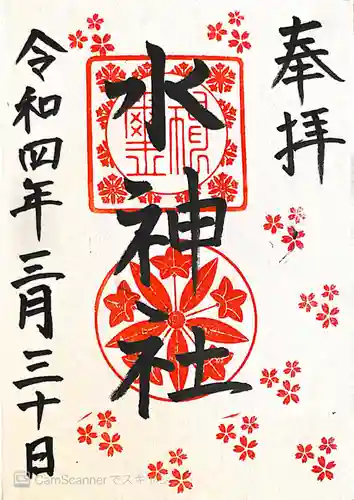 奉拝
水神社
令和四年三月三十日
CamScanner でスキャン